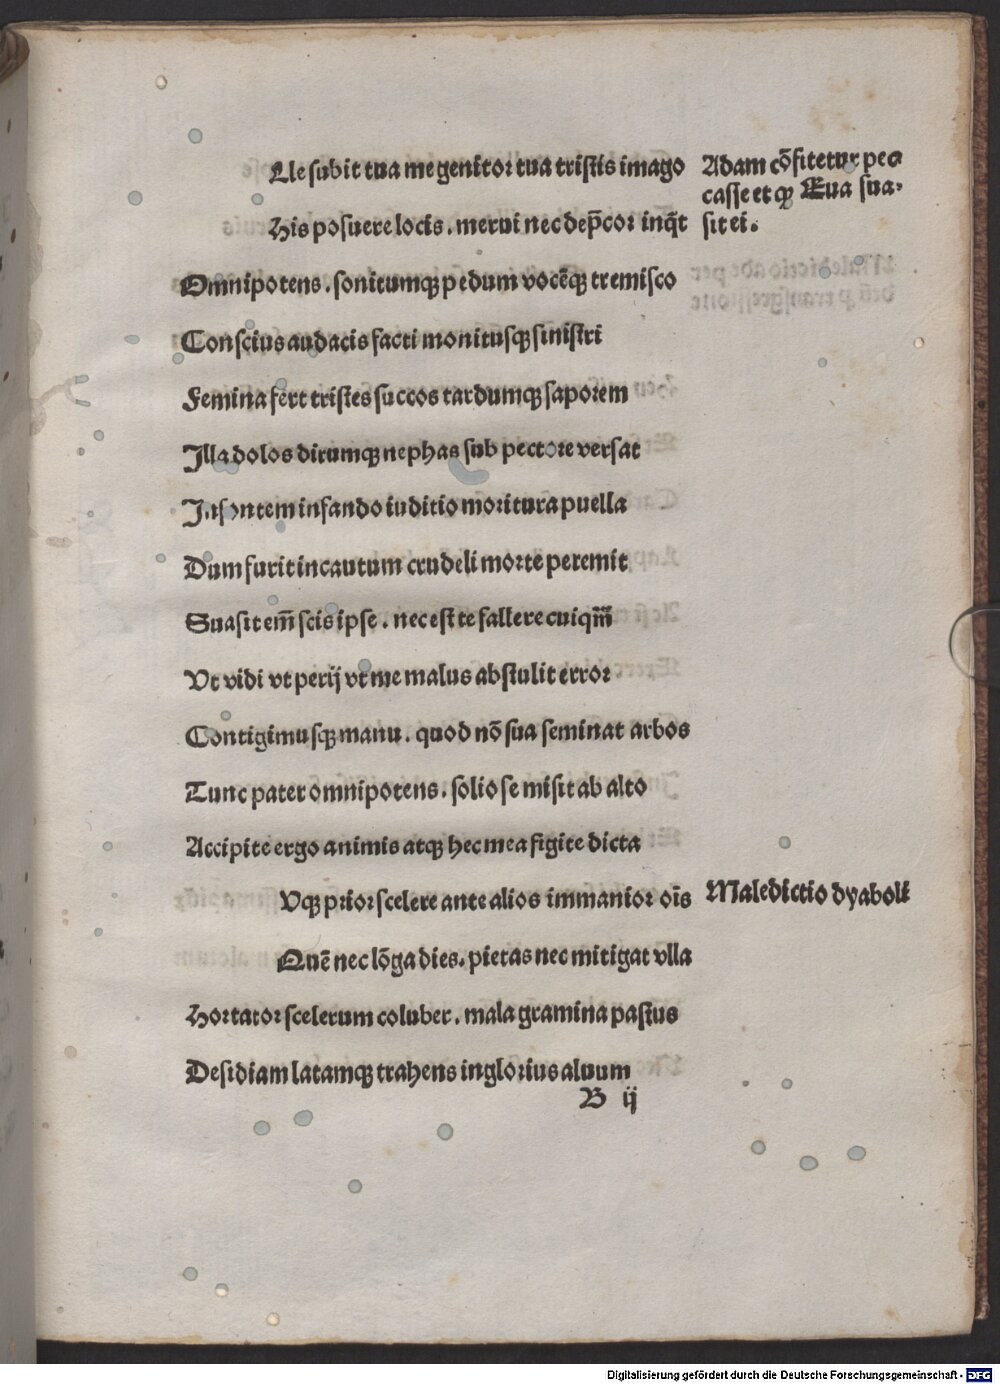 Lle subit tua me genitor tua tristis imago
Adam cōfitetur pec
casse et qꝫ Eua sua-
His posuere locis . merui nec dep̄cor inq̄t
sit ei.
Omnipotens . sonitumqꝫ pedum vocēqꝫ tremisco
Conscius audacis facti monitusqꝫ sinistri
Femina fert tristes succos tardumqꝫ saporem
Illa dolos dirumqꝫ nephas sub pectore versat
Insontem infando iuditio moritura puella
Dum furit incautum crudeli morte peremit
Suasit em̄ scis ipse . nec est te fallere cuiqm̄
Vt vidi vt perij vt me malus abstulit error
Contigimusqꝫ manu . quod nō sua seminat arbos
Tunc pater omnipotens . solio se misit ab alto
Accipite ergo animis atqꝫ hec mea figite dicta
Vqꝫ prior scelere ante alios immanior oīs
Maledictio dyaboli
Quē nec lōga dies . pietas nec mitigat vlla
Hortator scelerum coluber . mala gramina pastus
Desidiam latamqꝫ trahens inglorius aluum
B ij
Digitalisierung gefördert durch die Deutsche Forschungsgemeinschaft - DFG